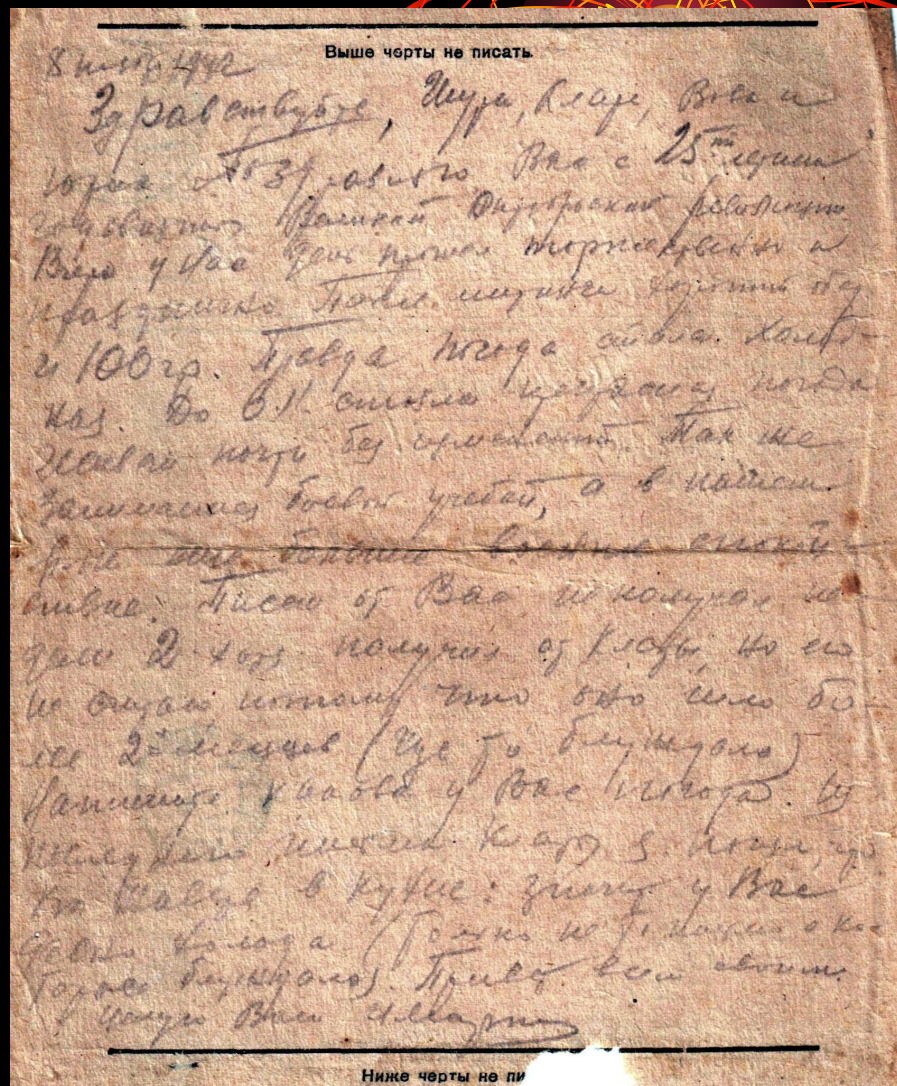 Выше черты не писать.
8 1942
Здравствуйте, Шура, Клара, Вова и
Юрик Поздравляю Вас с 25ти летней
годовщиной Великой Октябрьской революции
Вчера у нас день прошел торжественно и
празднично. хороший обед
и 100 гр. Правда погода стоит холод-
ная. До 6.11. стояла прекрасная погода
Живем почти без изменений. Так же
занимаемся боевой учебой, а в нашем
еще больше
Писем от Вас не получал не-
дели 2 хотя получил от Клары, но его
не считаю потому что оно шло бо-
лее 2х месяцев (где то блуждало)
Напишите какова у Вас погода. Из
последнего письма Клары я понял, что
в кухне: значит у Вас
холода (только не то письмо о ко-
тором блуждало). Привет всем своим.
Целую Вас
Ниже черты не пи